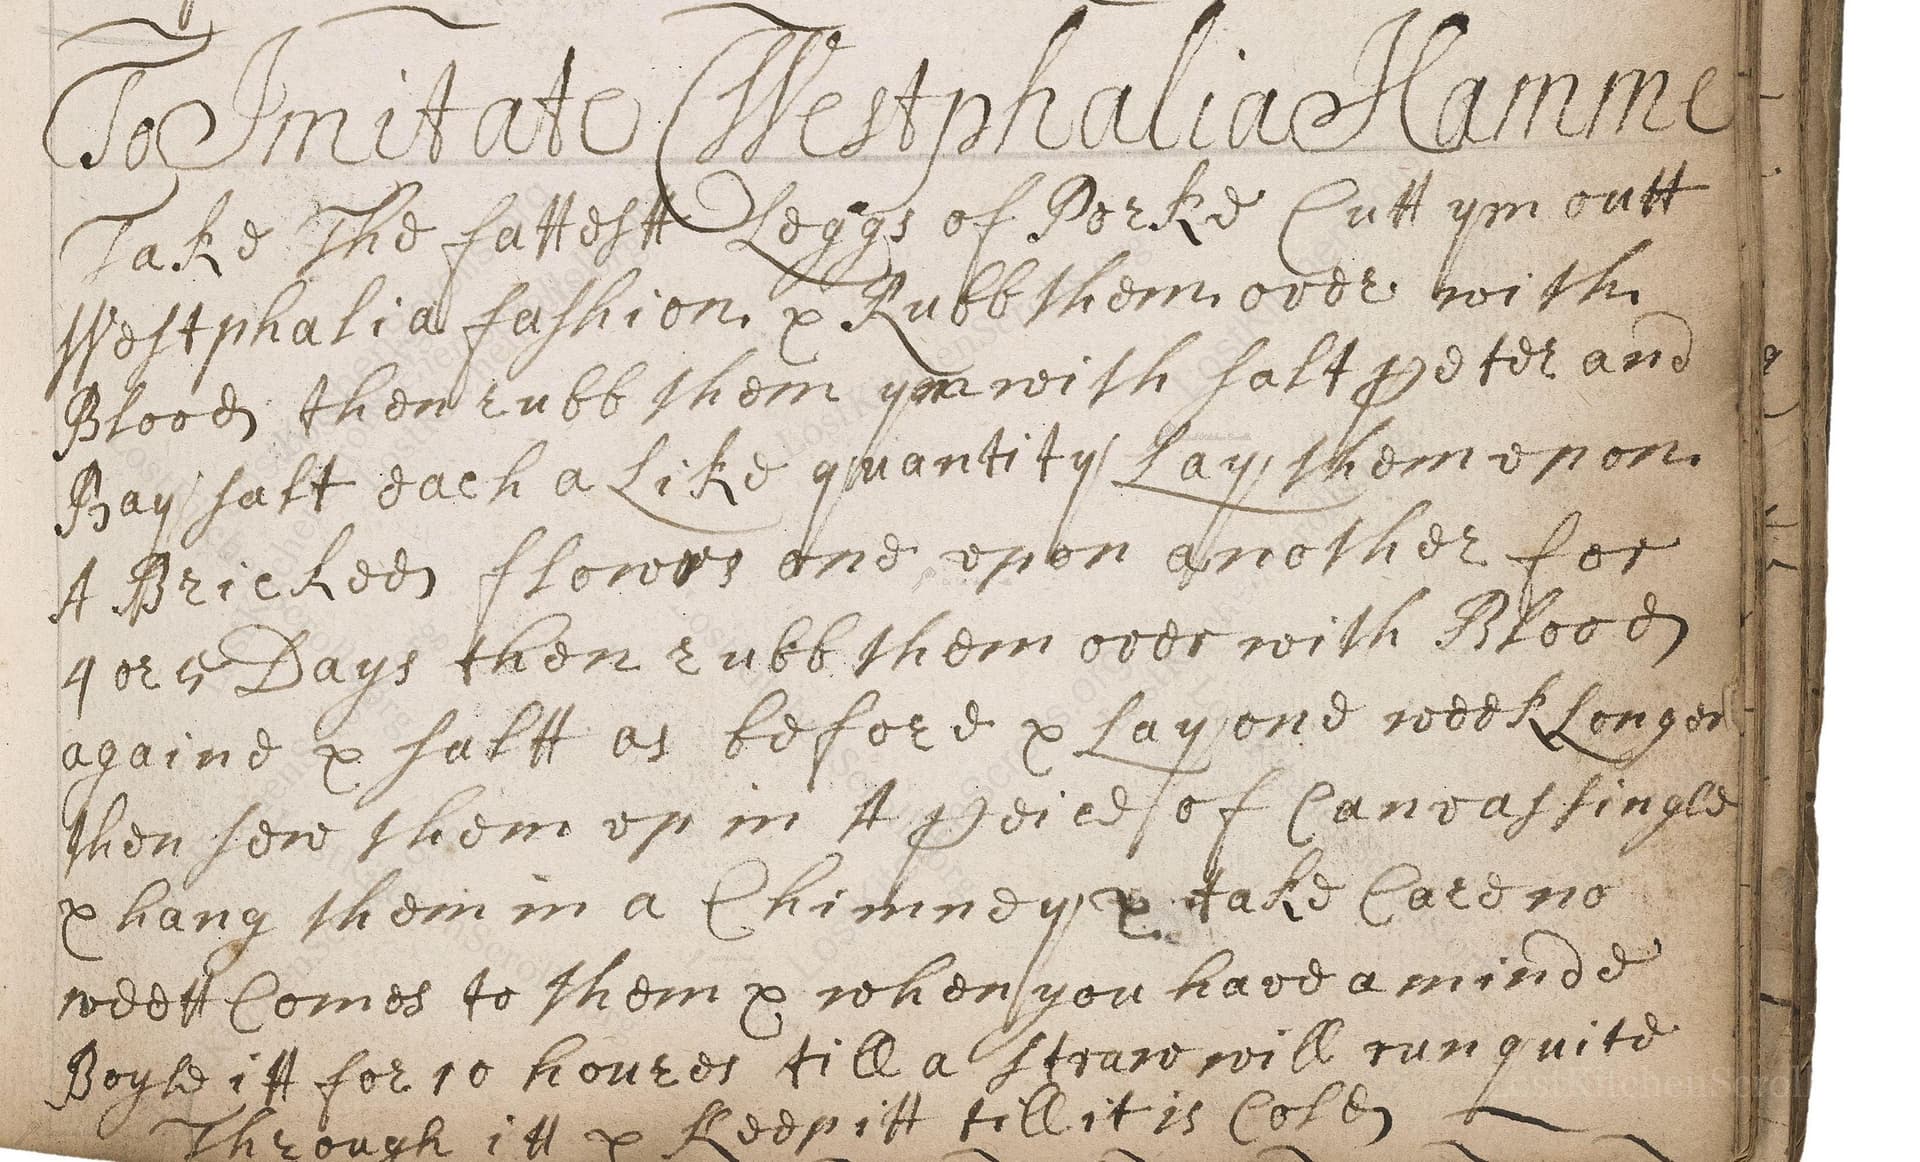 To Imitate Westphalia Hamme
Take The fattestt Leggs of Porke Cutt ym outt
Westphalia fashion & Rubb them over with
Blood then rubb them ym with salt peter and
Bay salt each a Like quantity Lay them vpon
A Bricked flowers one vpon another for
4 or 5 Days then rubb them over with Blood
againe & saltt as before & Lay one week Longer
then sew them vp in A peice of Canvas single
& hang them in a Chimney & take Care no
weett Comes to them & when you have a minde
Boyle itt for 10 houres till a straw will run quite
Through itt & Keep itt till it is Cold